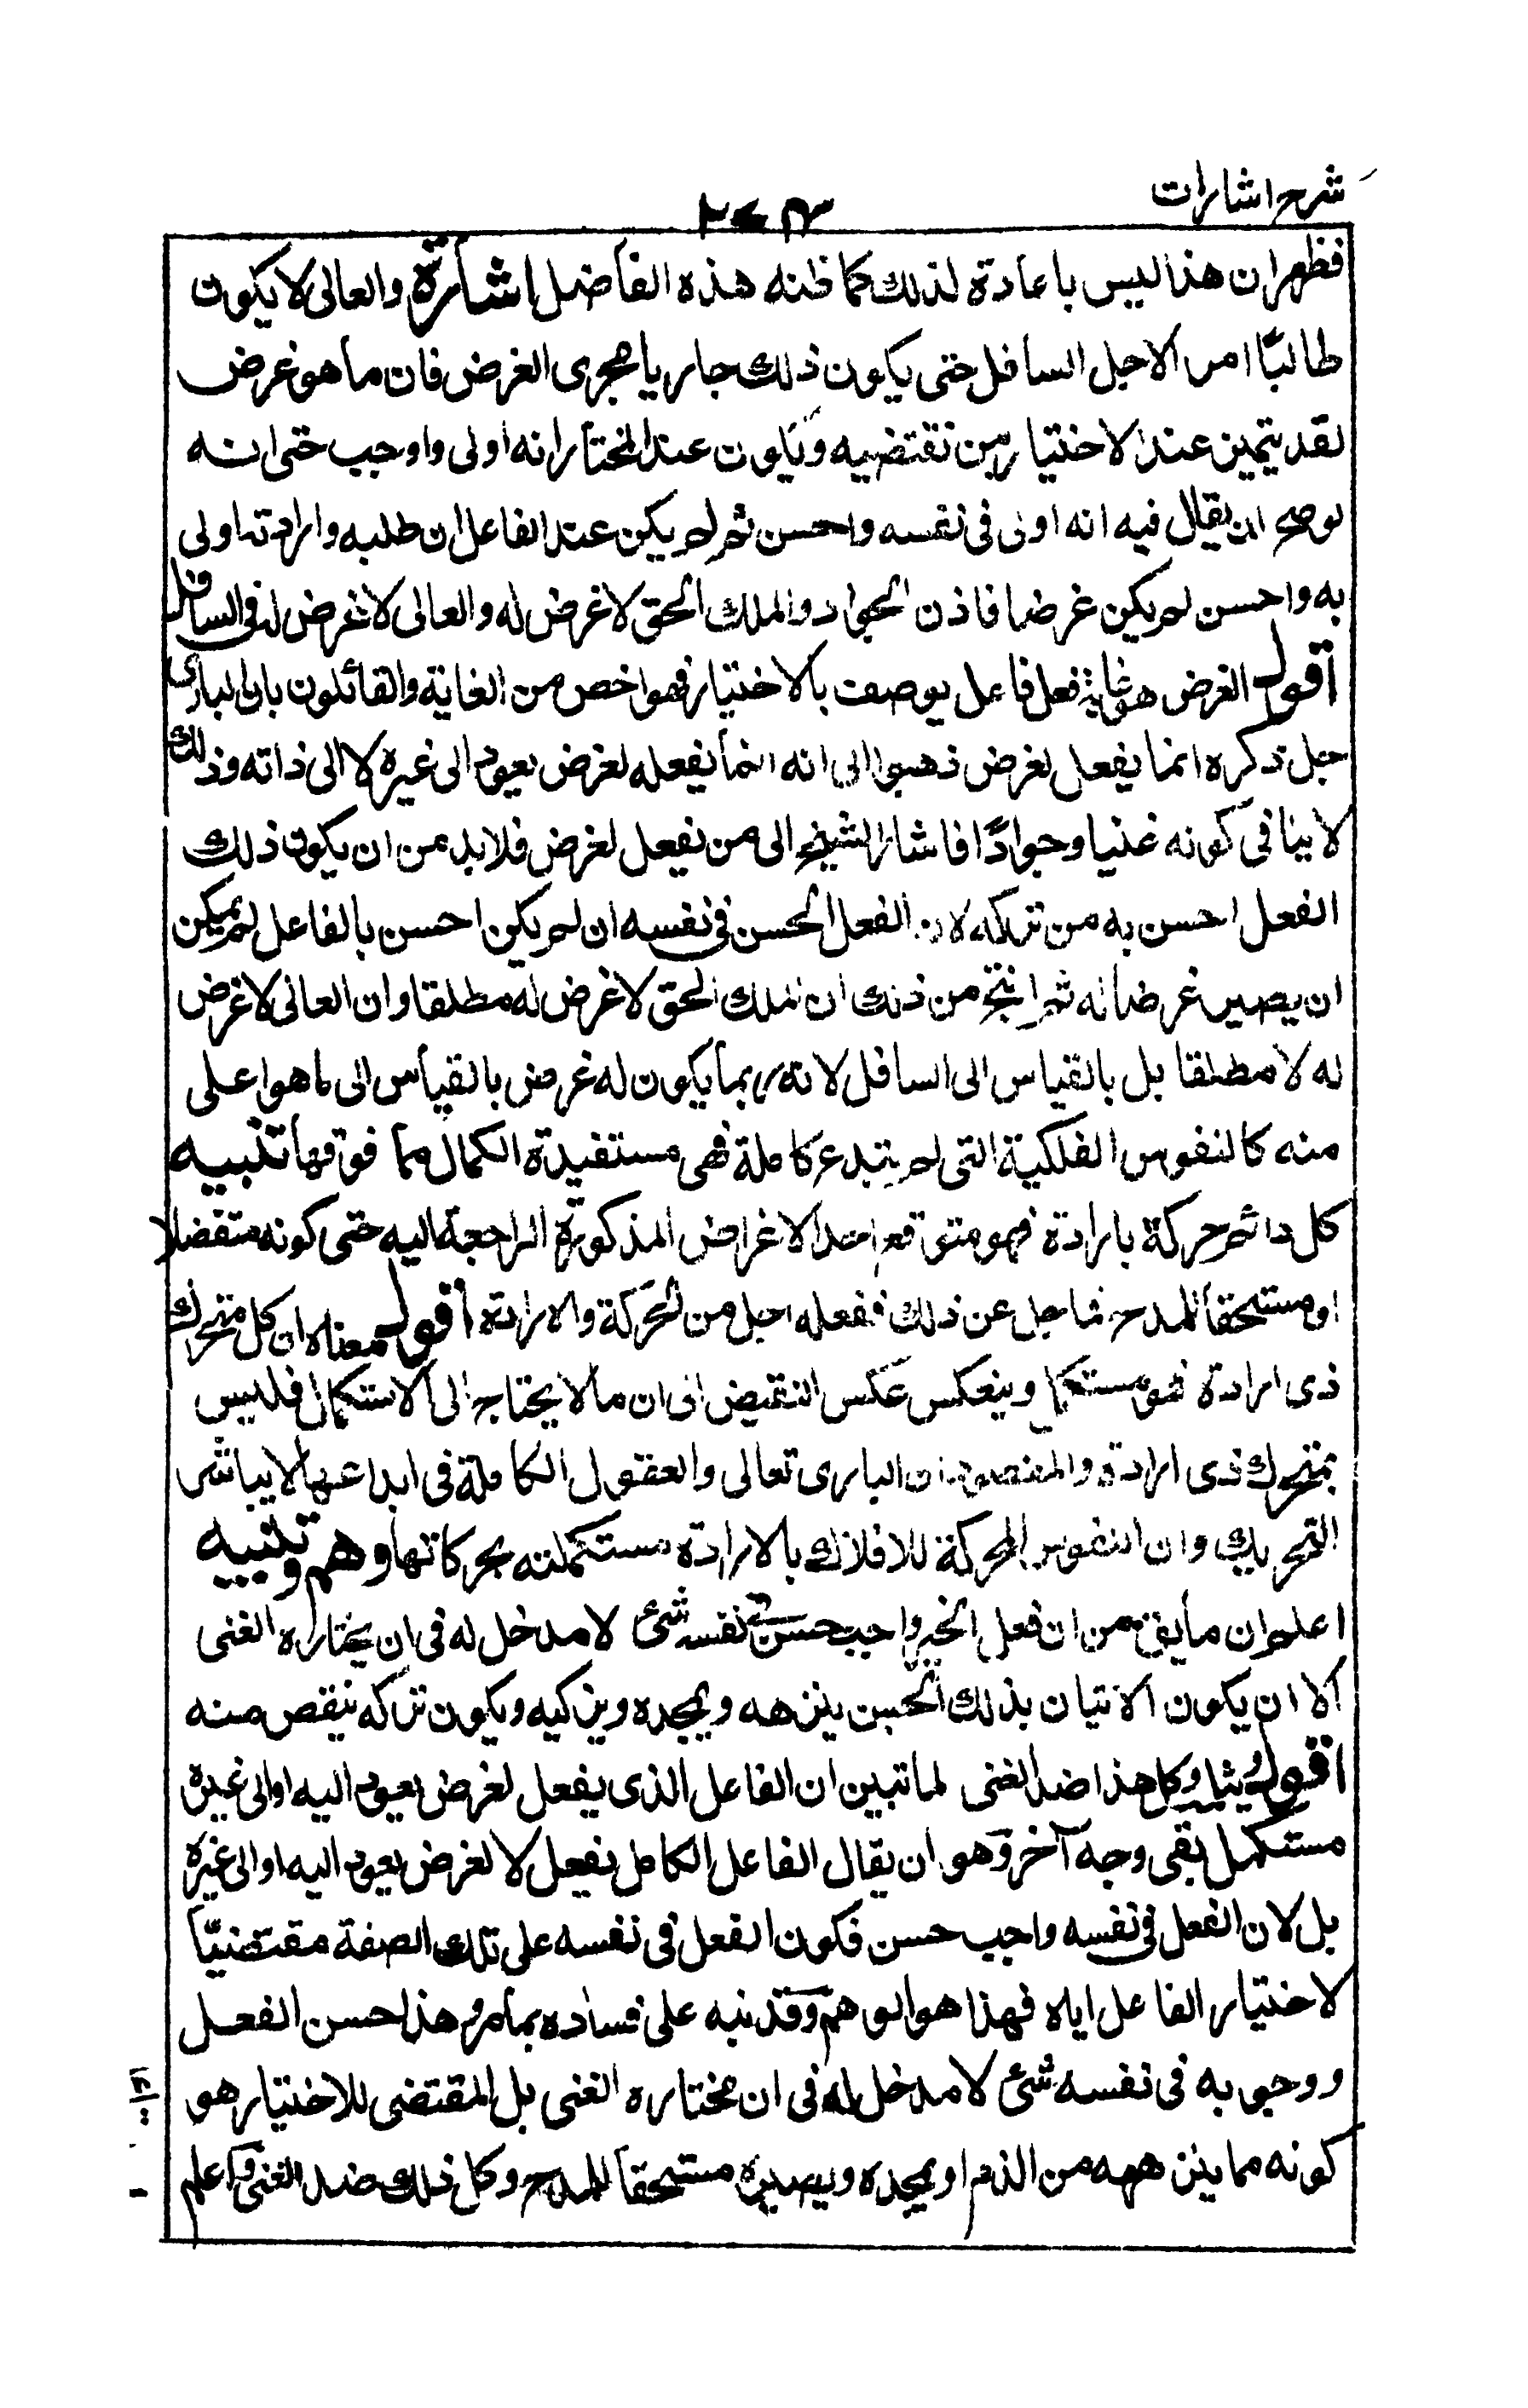 شرح اشارات
فظهر ان هذا ليس باعادة لذلك كما ظنه هذه الفاضل اشارة والعالى لا يكون
طالبًا امر الاجل السافل حتى يكون ذلك جاريا مجرى الغرض فان ما هو غرض
لقد يتميز عند الاختيار من نقتضيه ويكون عند المختار انه اولى واوجب حتى انه
لو صح ان يقال فيه انه اولى فى نفسه واحسن ثم لم يكن عند الفاعل ان طلبه وارادته اولى
به واحسن لم يكن غرضا فاذن الجواد والملك الحق لا غرض له والعالى لا غرض له فى السافل
اقول الغرض هو غاية فعل فاعل يوصف بالاختيار فهو اخص من الغاية والقائلون بان البارى
جل ذكره انما يفعل لغرض ذهبوا الى انه انما يفعله لغرض يعود الى غيره لا الى ذاته وذلك
لا ينافى كونه غنيا وجوادًا فاشار الشيخ الى من يفعل لغرض فلا بد من ان يكون ذلك
الفعل احسن به من تركه لان الفعل الحسن فى نفسه ان لم يكن احسن بالفاعل لم يمكن
ان يصير غرضا له ثم انتج من ذلك ان الملك الحق لا غرض له مطلقا وان العالى لا غرض
له لا مطلقا بل بالقياس الى السافل لانه ربما يكون له غرض بالقياس الى ما هو اعلى
منه كالنفوس الفلكية التى لم يبتدع كاملة فهى مستفيدة الكمال مما فوقها تنبيه
كل دائم حركة بارادة فهو متوقع احد الاغراض المذكورة الراجعة اليه حتى كونه متفضلا
او مستحقا للمدح فما جل عن ذلك ففعله اجل من الحركة والارادة اقول معناه ان كل متحرك
ذى ارادة فهو مستكمل وينعكس عكس النقيض الى ان ما لا يحتاج الى الاستكمال فليس
بمتحرك ذى ارادة والمقصود ان البارى تعالى والعقول الكاملة فى ابداعها لا يباشر
التحريك وان النفوس المحركة للافلاك بالارادة مستكملته بحركاتها وهم وتنبيه
اعلم ان ما يقى من ان فعل الخير واجب حسن فى نفسه شئ لا مدخل له فى ان يختاره الغنى
الا ان يكون الاتيان بذلك الحسن ينزهه ويمجده ويزكيه ويكون تركه ينقص منه
وكل هذا ضد الغنى اقول لما تبين ان الفاعل الذى يفعل لغرض يعود اليه او الى غيره
مستكمل بقى وجه آخر وهو ان يقال الفاعل الكامل يفعل لا لغرض يعود اليه او الى غيره
بل لان الفعل فى نفسه واجب حسن فكون الفعل فى نفسه على تلك الصفة مقتضيًا
لاختيار الفاعل اياه فهذا هو الوهم وقد نبه على فساده بما مر وهذا حسن الفعل
ووجوبه فى نفسه شئ لا مدخل له فى ان مختاره الغنى بل المقتضى للاختيار هو
كونه مما ينزهه من الذم او يمجده ويصيره مستحقا للمدح وكل ذلك ضد الغنى واعلم